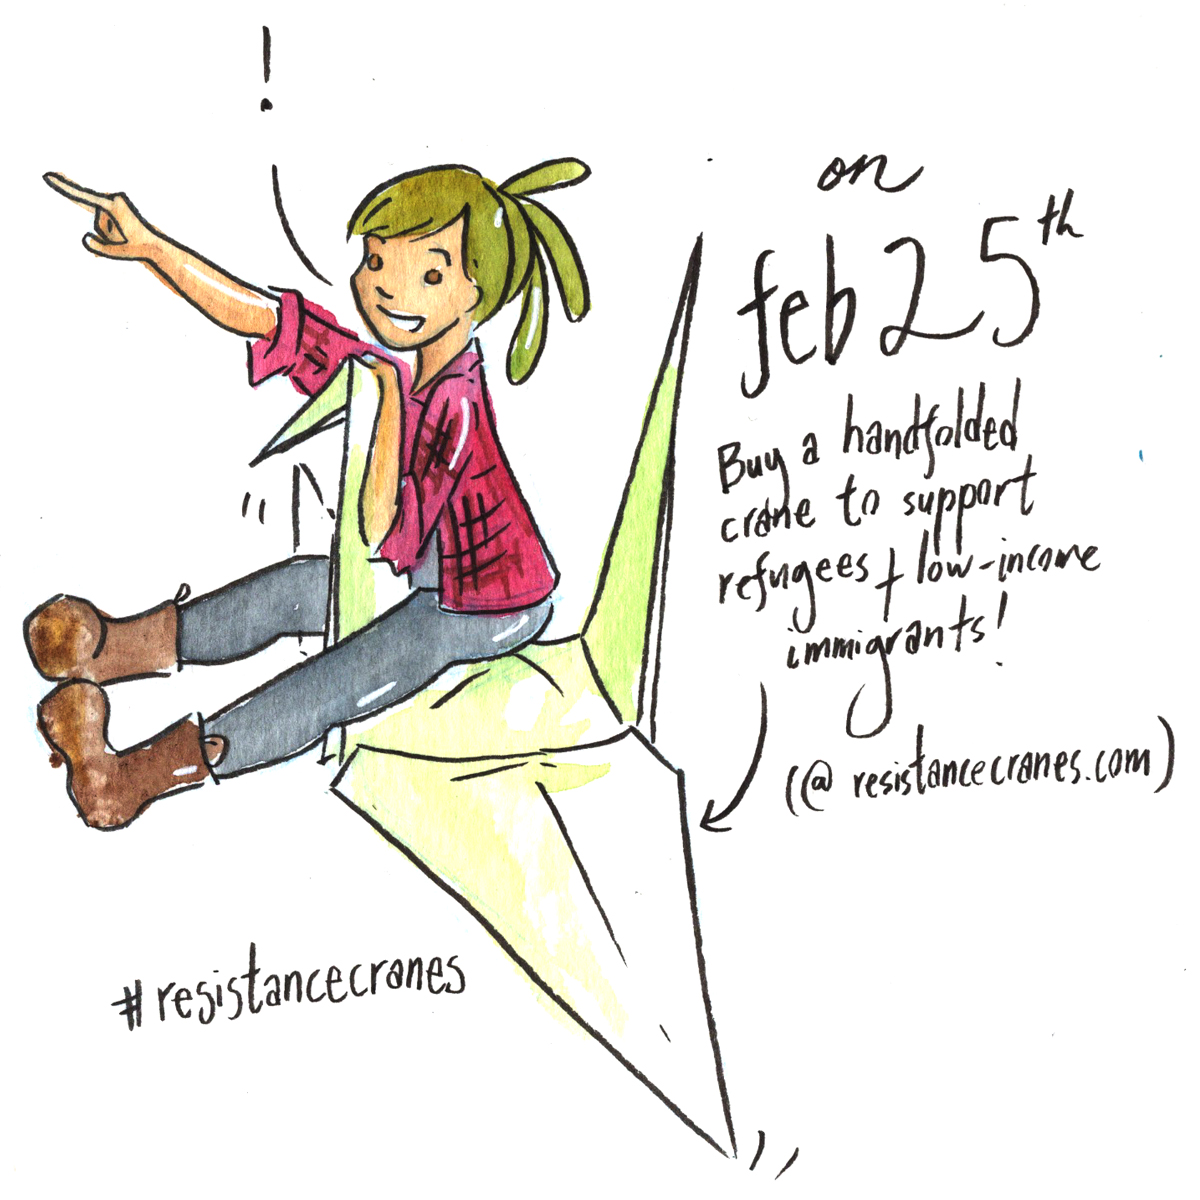 !
on
feb 25th
Buy a handfolded
crane to support
refugees + low-income
immigrants!
(@ resistancecranes.com)
#resistancecranes